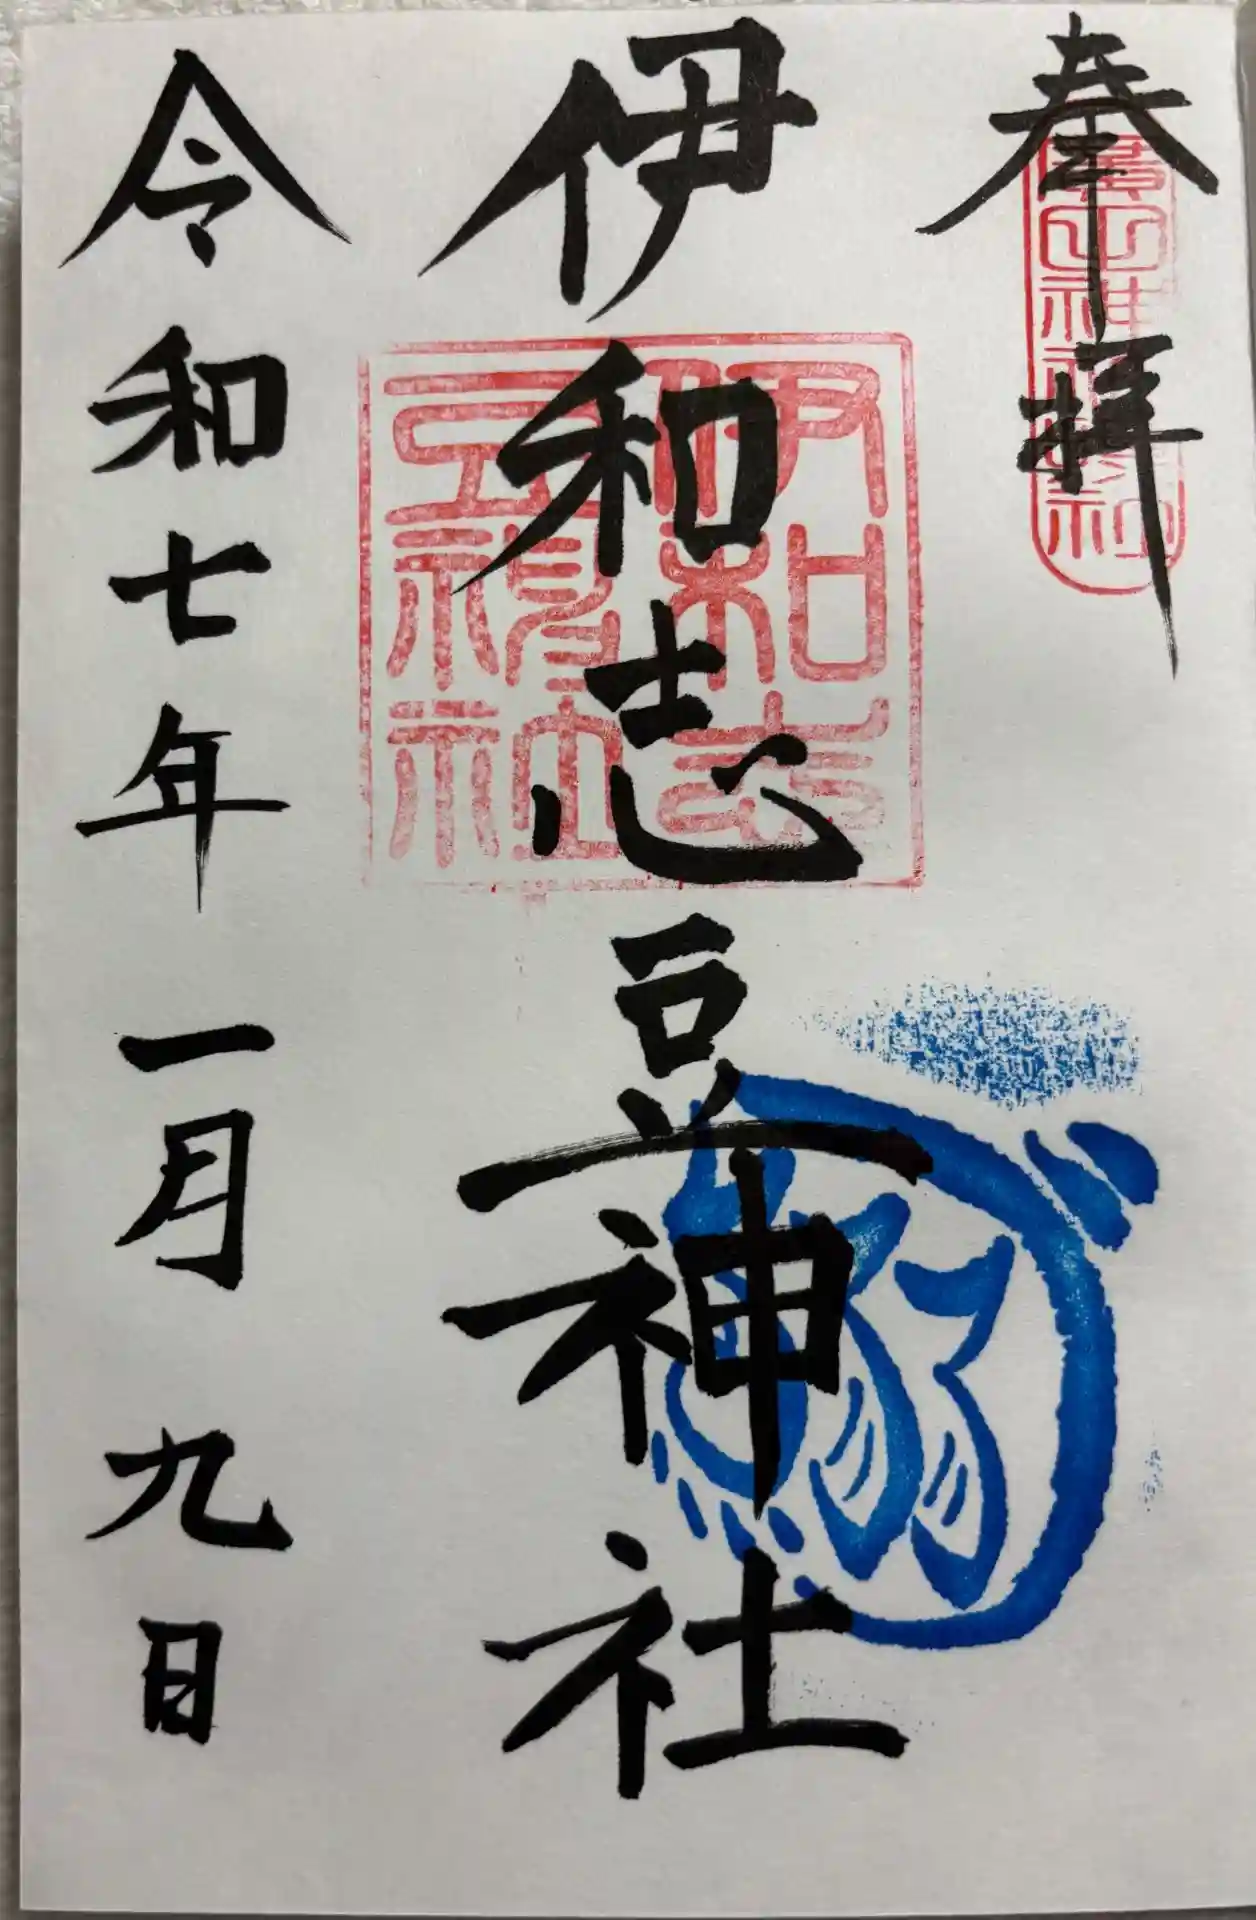 奉拝
伊和志豆神社
伊和志豆神社
令和七年一月九日